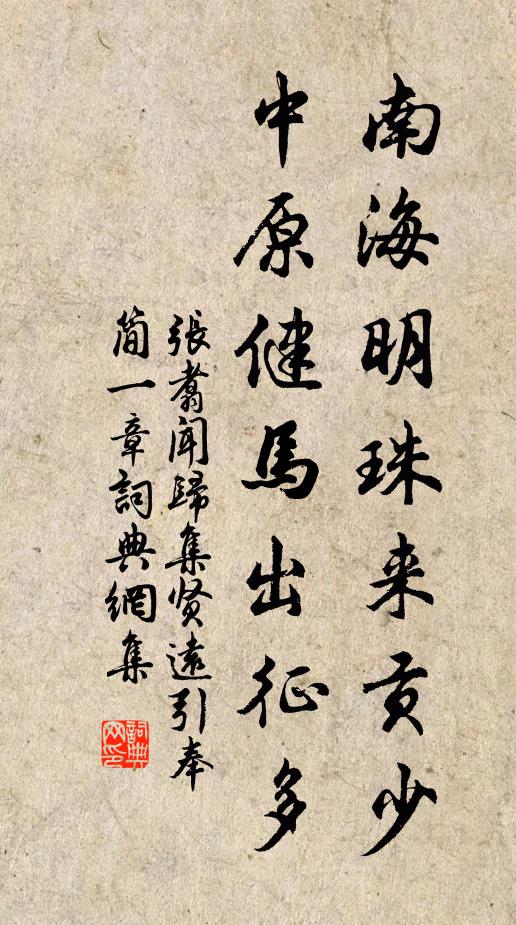 南海明珠来贡少
中原健馬出征多
張翥闻歸集贤遠引奉
简一章詞典網集
詞典网印